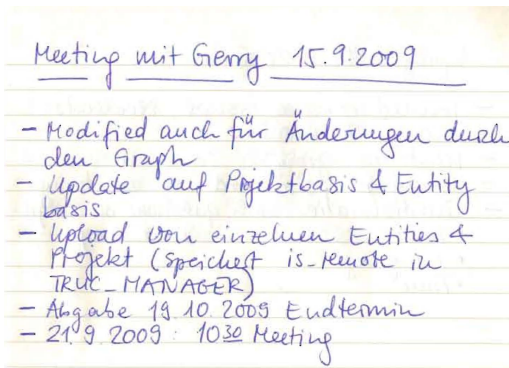 Meeting mit Gerry 15.9.2009
- Modified auch für Änderungen durch
den Graph
- Update auf Projektbasis & Entity
basis
- Upload von einzelnen Entities &
Projekt (speichert is_remote in
TRUC_MANAGER)
- Abgabe 19.10.2009 Endtermin
- 21.9.2009: 1030 Meeting